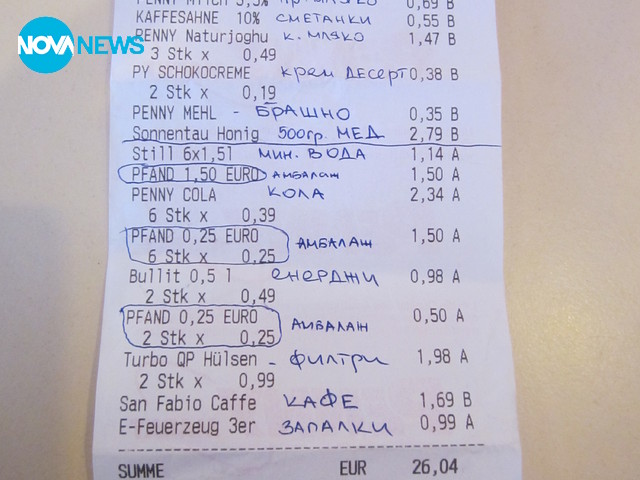 PENNY Milch 3,5% 0,69 B
KAFFESAHNE 10% СМЕТАНКИ 0,55 B
NOVANEWS
PENNY Naturjoghu К. МЛЯКО 1,47 B
3 Stk x 0,49
PY SCHOKOCREME крем ДЕСЕРТ 0,38 B
2 Stk x 0,19
PENNY MEHL - БРАШНО 0,35 B
Sonnentau Honig 500гр. МЕД 2,79 B
Still 6x1,5l МИН. ВОДА 1,14 A
PFAND 1,50 EURO АМБАЛАЖ 1,50 A
PENNY COLA КОЛА 2,34 A
6 Stk x 0,39
PFAND 0,25 EURO АМБАЛАЖ 1,50 A
6 Stk x 0,25
Bullit 0,5 l ЕНЕРДЖИ 0,98 A
2 Stk x 0,49
PFAND 0,25 EURO АМБАЛАЖ 0,50 A
2 Stk x 0,25
Turbo QP Hülsen - ФИЛТРИ 1,98 A
2 Stk x 0,99
San Fabio Caffe КАФЕ 1,69 B
E-Feuerzeug 3er ЗАПАЛКИ 0,99 A
SUMME EUR 26,04